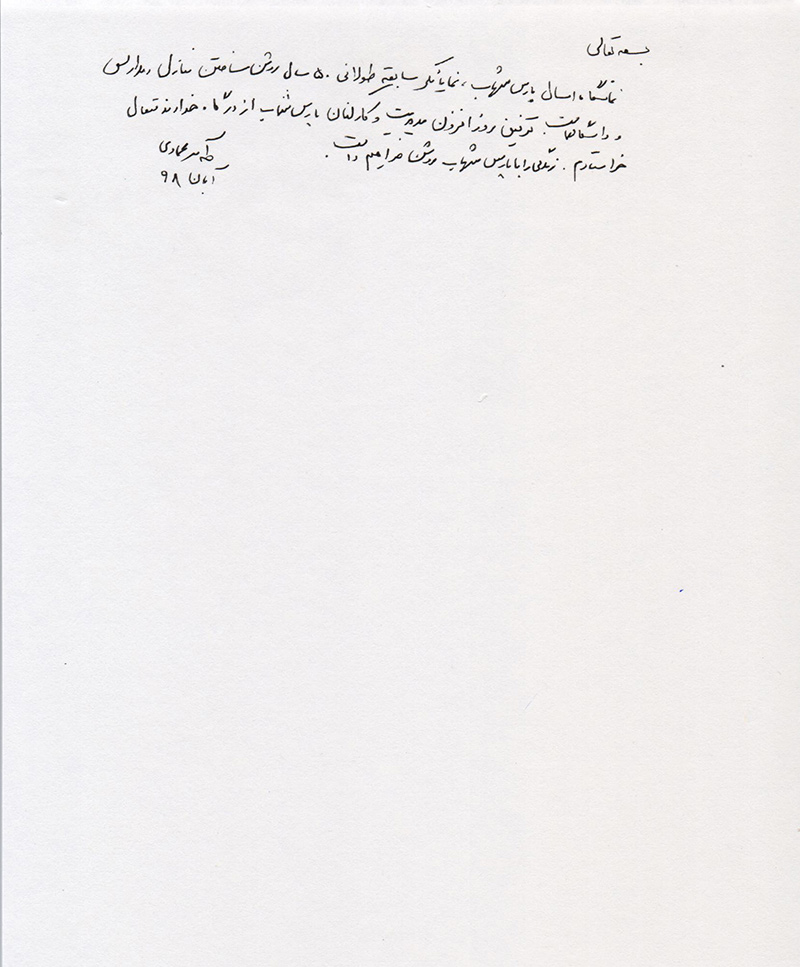 بسمه تعالی
نمایشگاه امسال پارس شهاب، نمایانگر سابقه طولانی ۵۰ سال روشن ساختن منازل، مدارس
و دانشگاههاست. توفیق روزافزون مدیریت و کارکنان پارس شهاب از درگاه خداوند متعال
خواستارم. زندگی را با پارس شهاب روشن خواهیم داشت.
آبان ۹۸